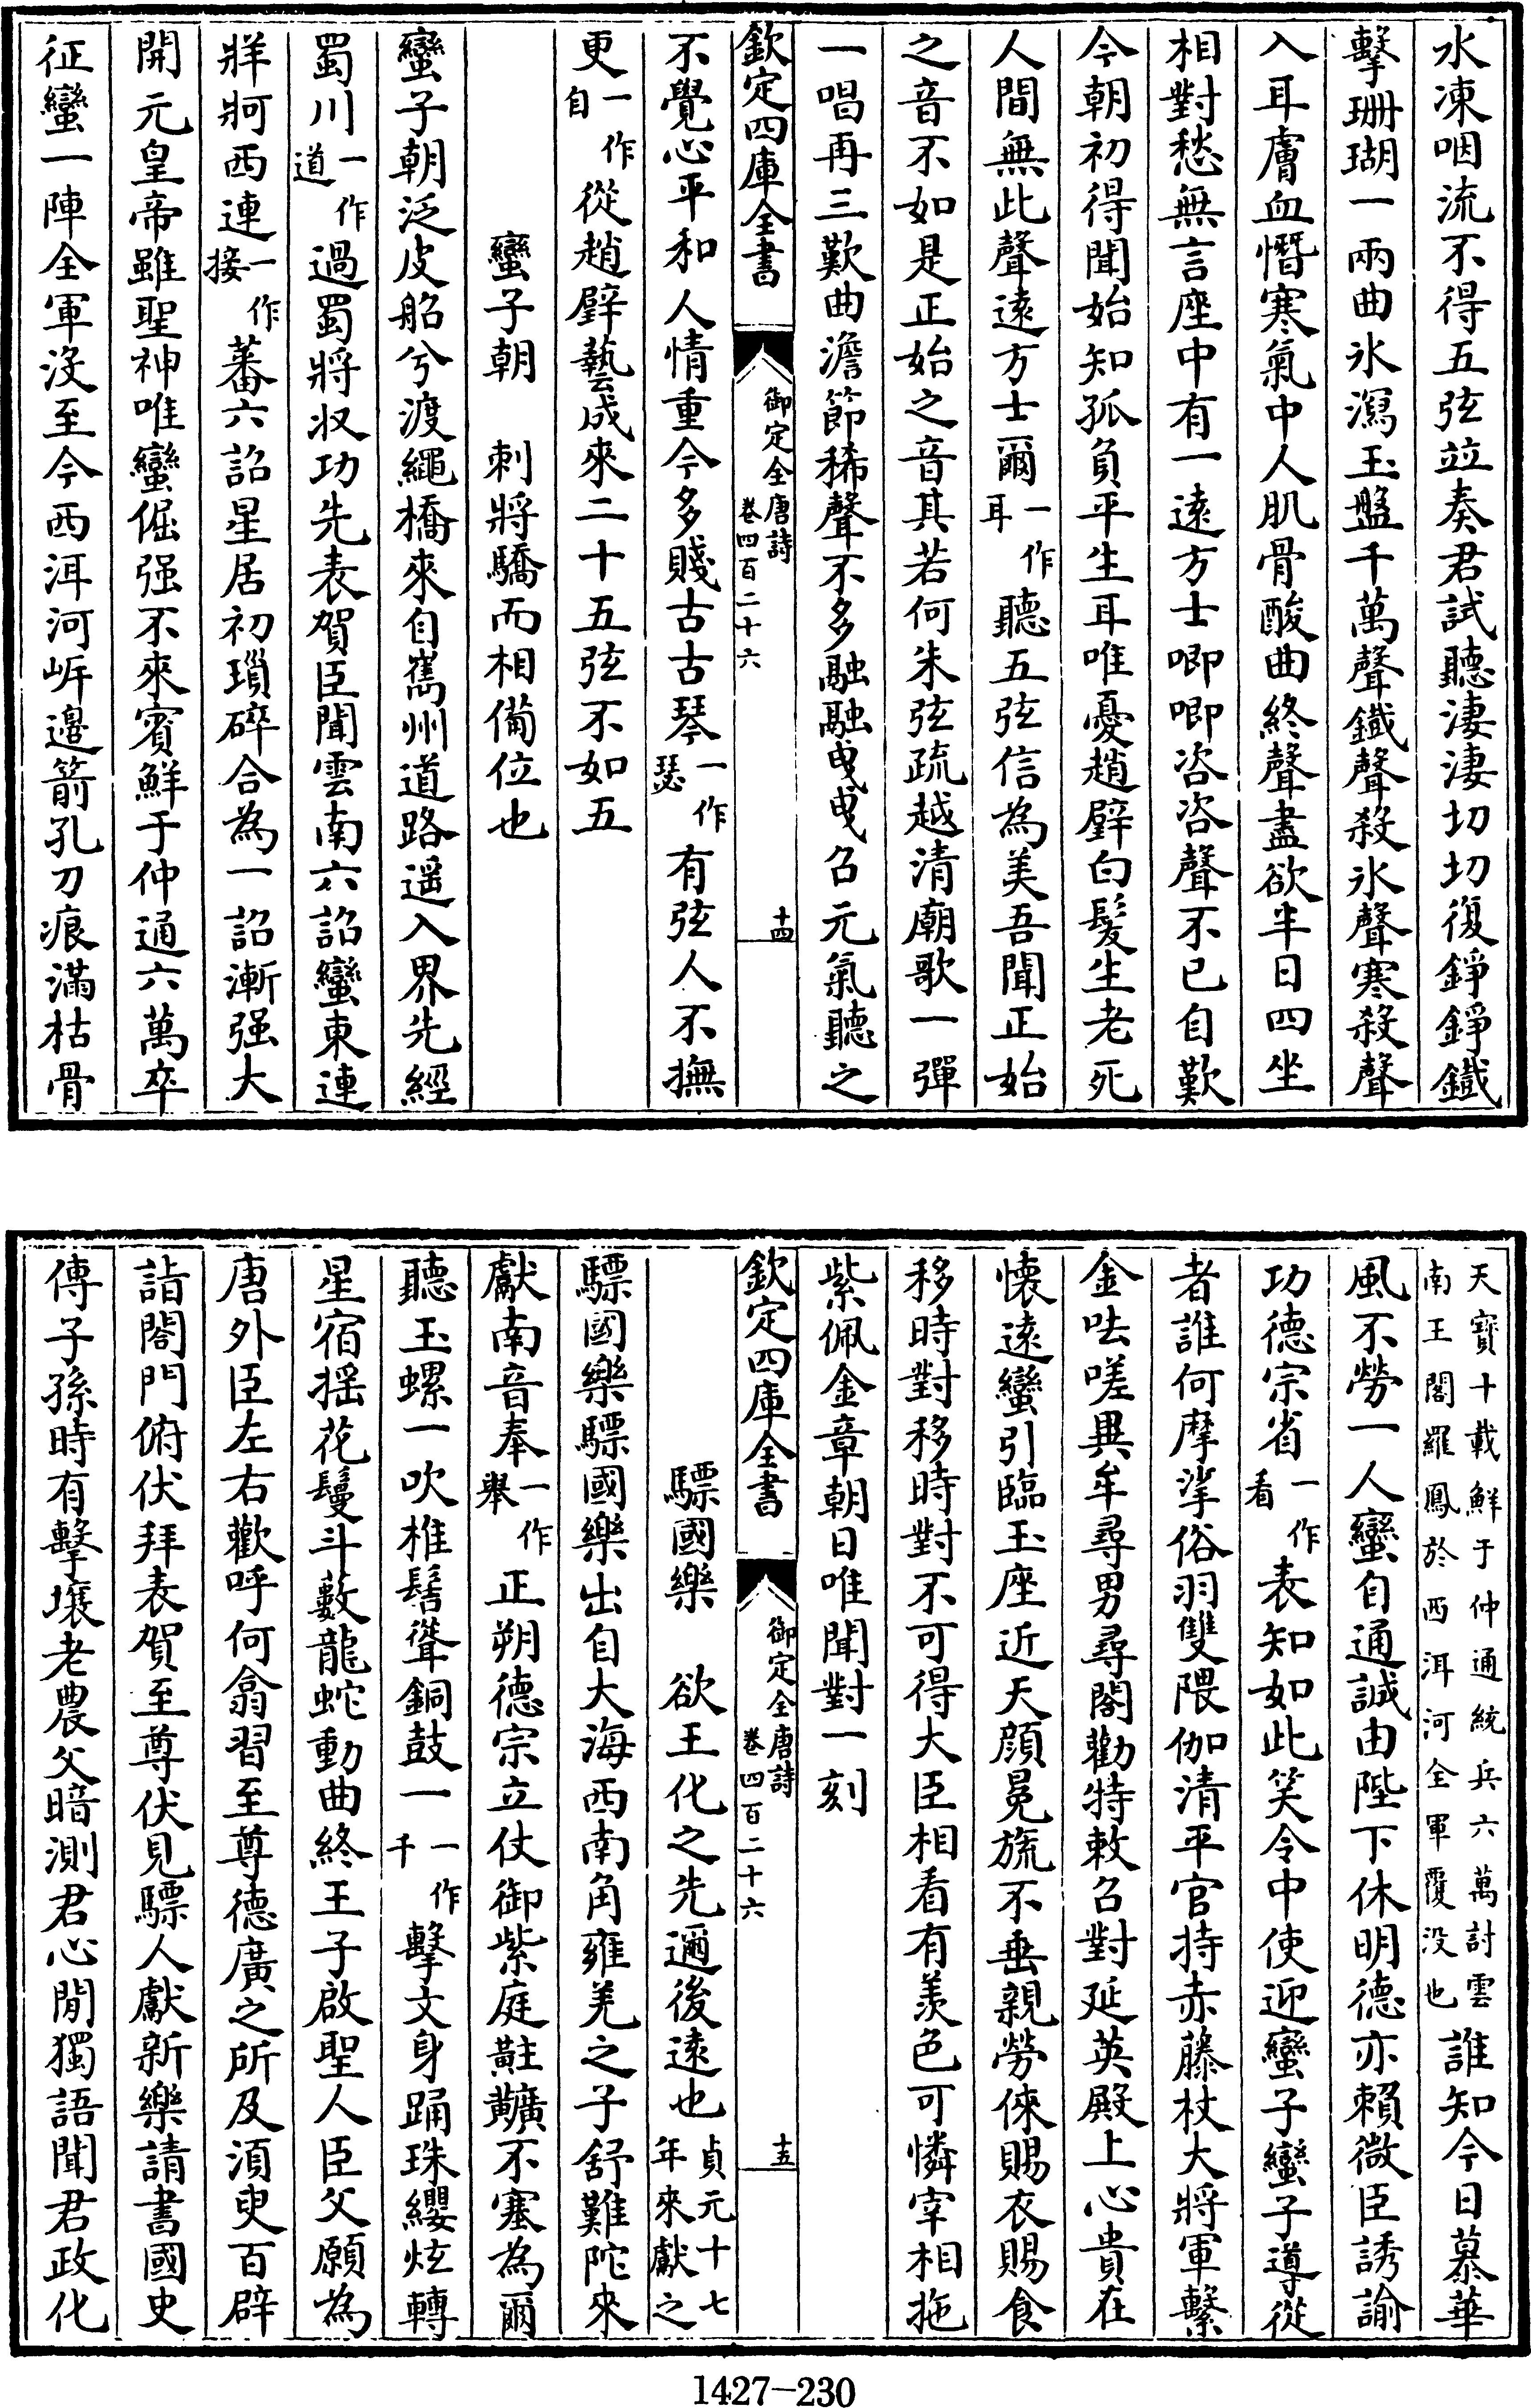 水凍咽流不得五弦竝奏君試聽淒淒切切復錚錚鐵
擊珊瑚一兩曲氷瀉玉盤千萬聲鐵聲殺氷聲寒殺聲
入耳膚血憯寒氣中人肌骨酸曲終聲盡欲半日四坐
相對愁無言座中有一逺方士唧唧咨咨聲不已自歎
今朝初得聞始知孤負平生耳唯憂趙璧白髮生老死
人間無此聲逺方士爾一作耳聽五弦信為美吾聞正始
之音不如是正始之音其若何朱弦疏越清廟歌一彈
一唱再三歎曲澹節稀聲不多融融曵曵召元氣聽之
欽定四庫全書 御定全唐詩 卷四百二十六 十四
不覺心平和人情重今多賤古古琴一作瑟有弦人不撫
更一作自從趙璧藝成來二十五弦不如五
蠻子朝 刺將驕而相備位也
蠻子朝泛皮船兮渡繩橋來自嶲州道路遥入界先經
蜀川一作道過蜀將收功先表賀臣聞雲南六詔蠻東連
牂牁西連一作接蕃六詔星居初瑣碎合為一詔漸强大
開元皇帝雖聖神唯蠻倔强不來賓鮮于仲通六萬卒
征蠻一陣全軍沒至今西洱河岍邉箭孔刀痕滿枯骨
天寶十載鮮于仲通統兵六萬討雲
南王閣羅鳳於西洱河全軍覆没也誰知今日慕華
風不勞一人蠻自通誠由陛下休明德亦賴微臣誘諭
功德宗省一作看表知如此笑令中使迎蠻子蠻子導從
者誰何摩挲俗羽雙隈伽清平官持赤藤杖大將軍繫
金呿嗟異牟尋男尋閣勸特敕召對延英殿上心貴在
懐逺蠻引臨玉座近天顔冕旒不垂親勞倈賜衣賜食
移時對移時對不可得大臣相看有羨色可憐宰相拖
紫佩金章朝日唯聞對一刻
欽定四庫全書 御定全唐詩 卷四百二十六 十五
驃國樂 欲王化之先邇後逺也貞元十七年來獻之
驃國樂驃國樂出自大海西南角雍羌之子舒難陀來
獻南音奉一作舉正朔德宗立仗御紫庭黈纊不塞為爾
聽玉螺一吹椎髻聳銅鼓一一作千擊文身踊珠纓炫轉
星宿揺花鬘斗藪龍蛇動曲終王子啟聖人臣父願為
唐外臣左右歡呼何翕習至尊德廣之所及湏臾百辟
詣閤門俯伏拜表賀至尊伏見驃人獻新樂請書國史
傳子孫時有擊壤老農父暗測君心閒獨語聞君政化
1427—230